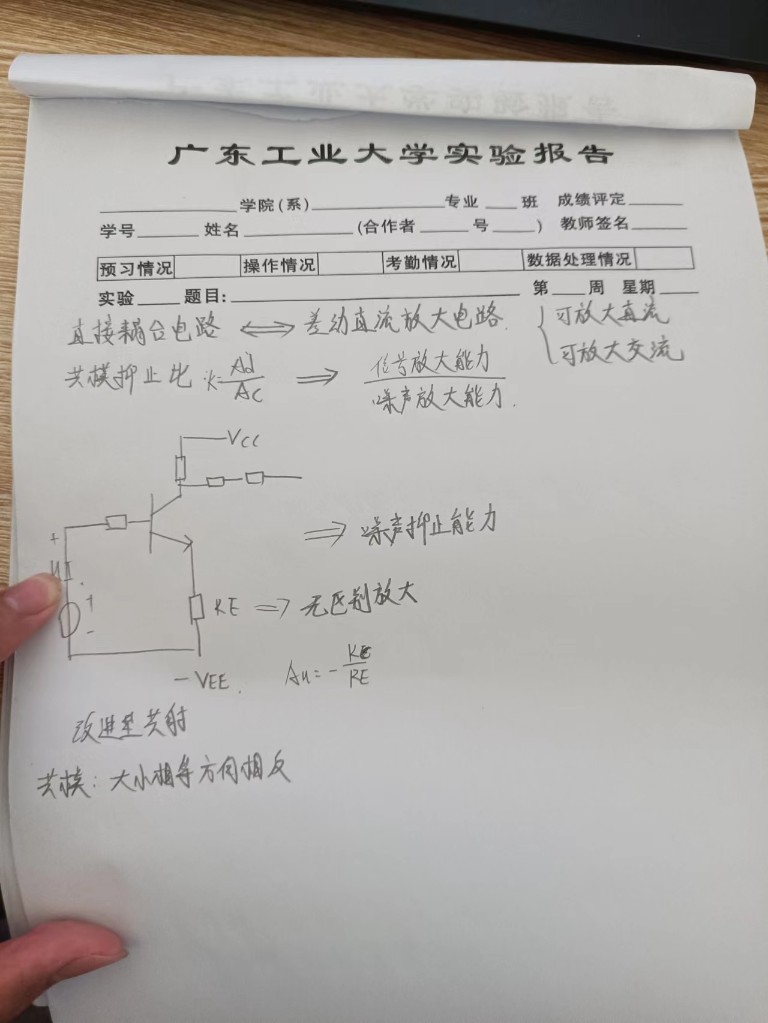 广东工业大学实验报告
______学院(系)______专业 ___ 班 成绩评定____
学号____ 姓名______ (合作者____ 号____) 教师签名____
预习情况 操作情况 考勤情况 数据处理情况
实验____ 题目:______ 第____周 星期____
直接耦合电路 ⟺ 差动直流放大电路. { 可放大直流
可放大交流
共模抑止比 K=Ad/Ac ⟹ 信号放大能力/噪声放大能力.
VCC
⟹ 噪声抑止能力
+
+
-
RE ⟹ 无区别放大
-VEE. Au=-RC/RE
改进型共射
共模: 大小相等方向相反